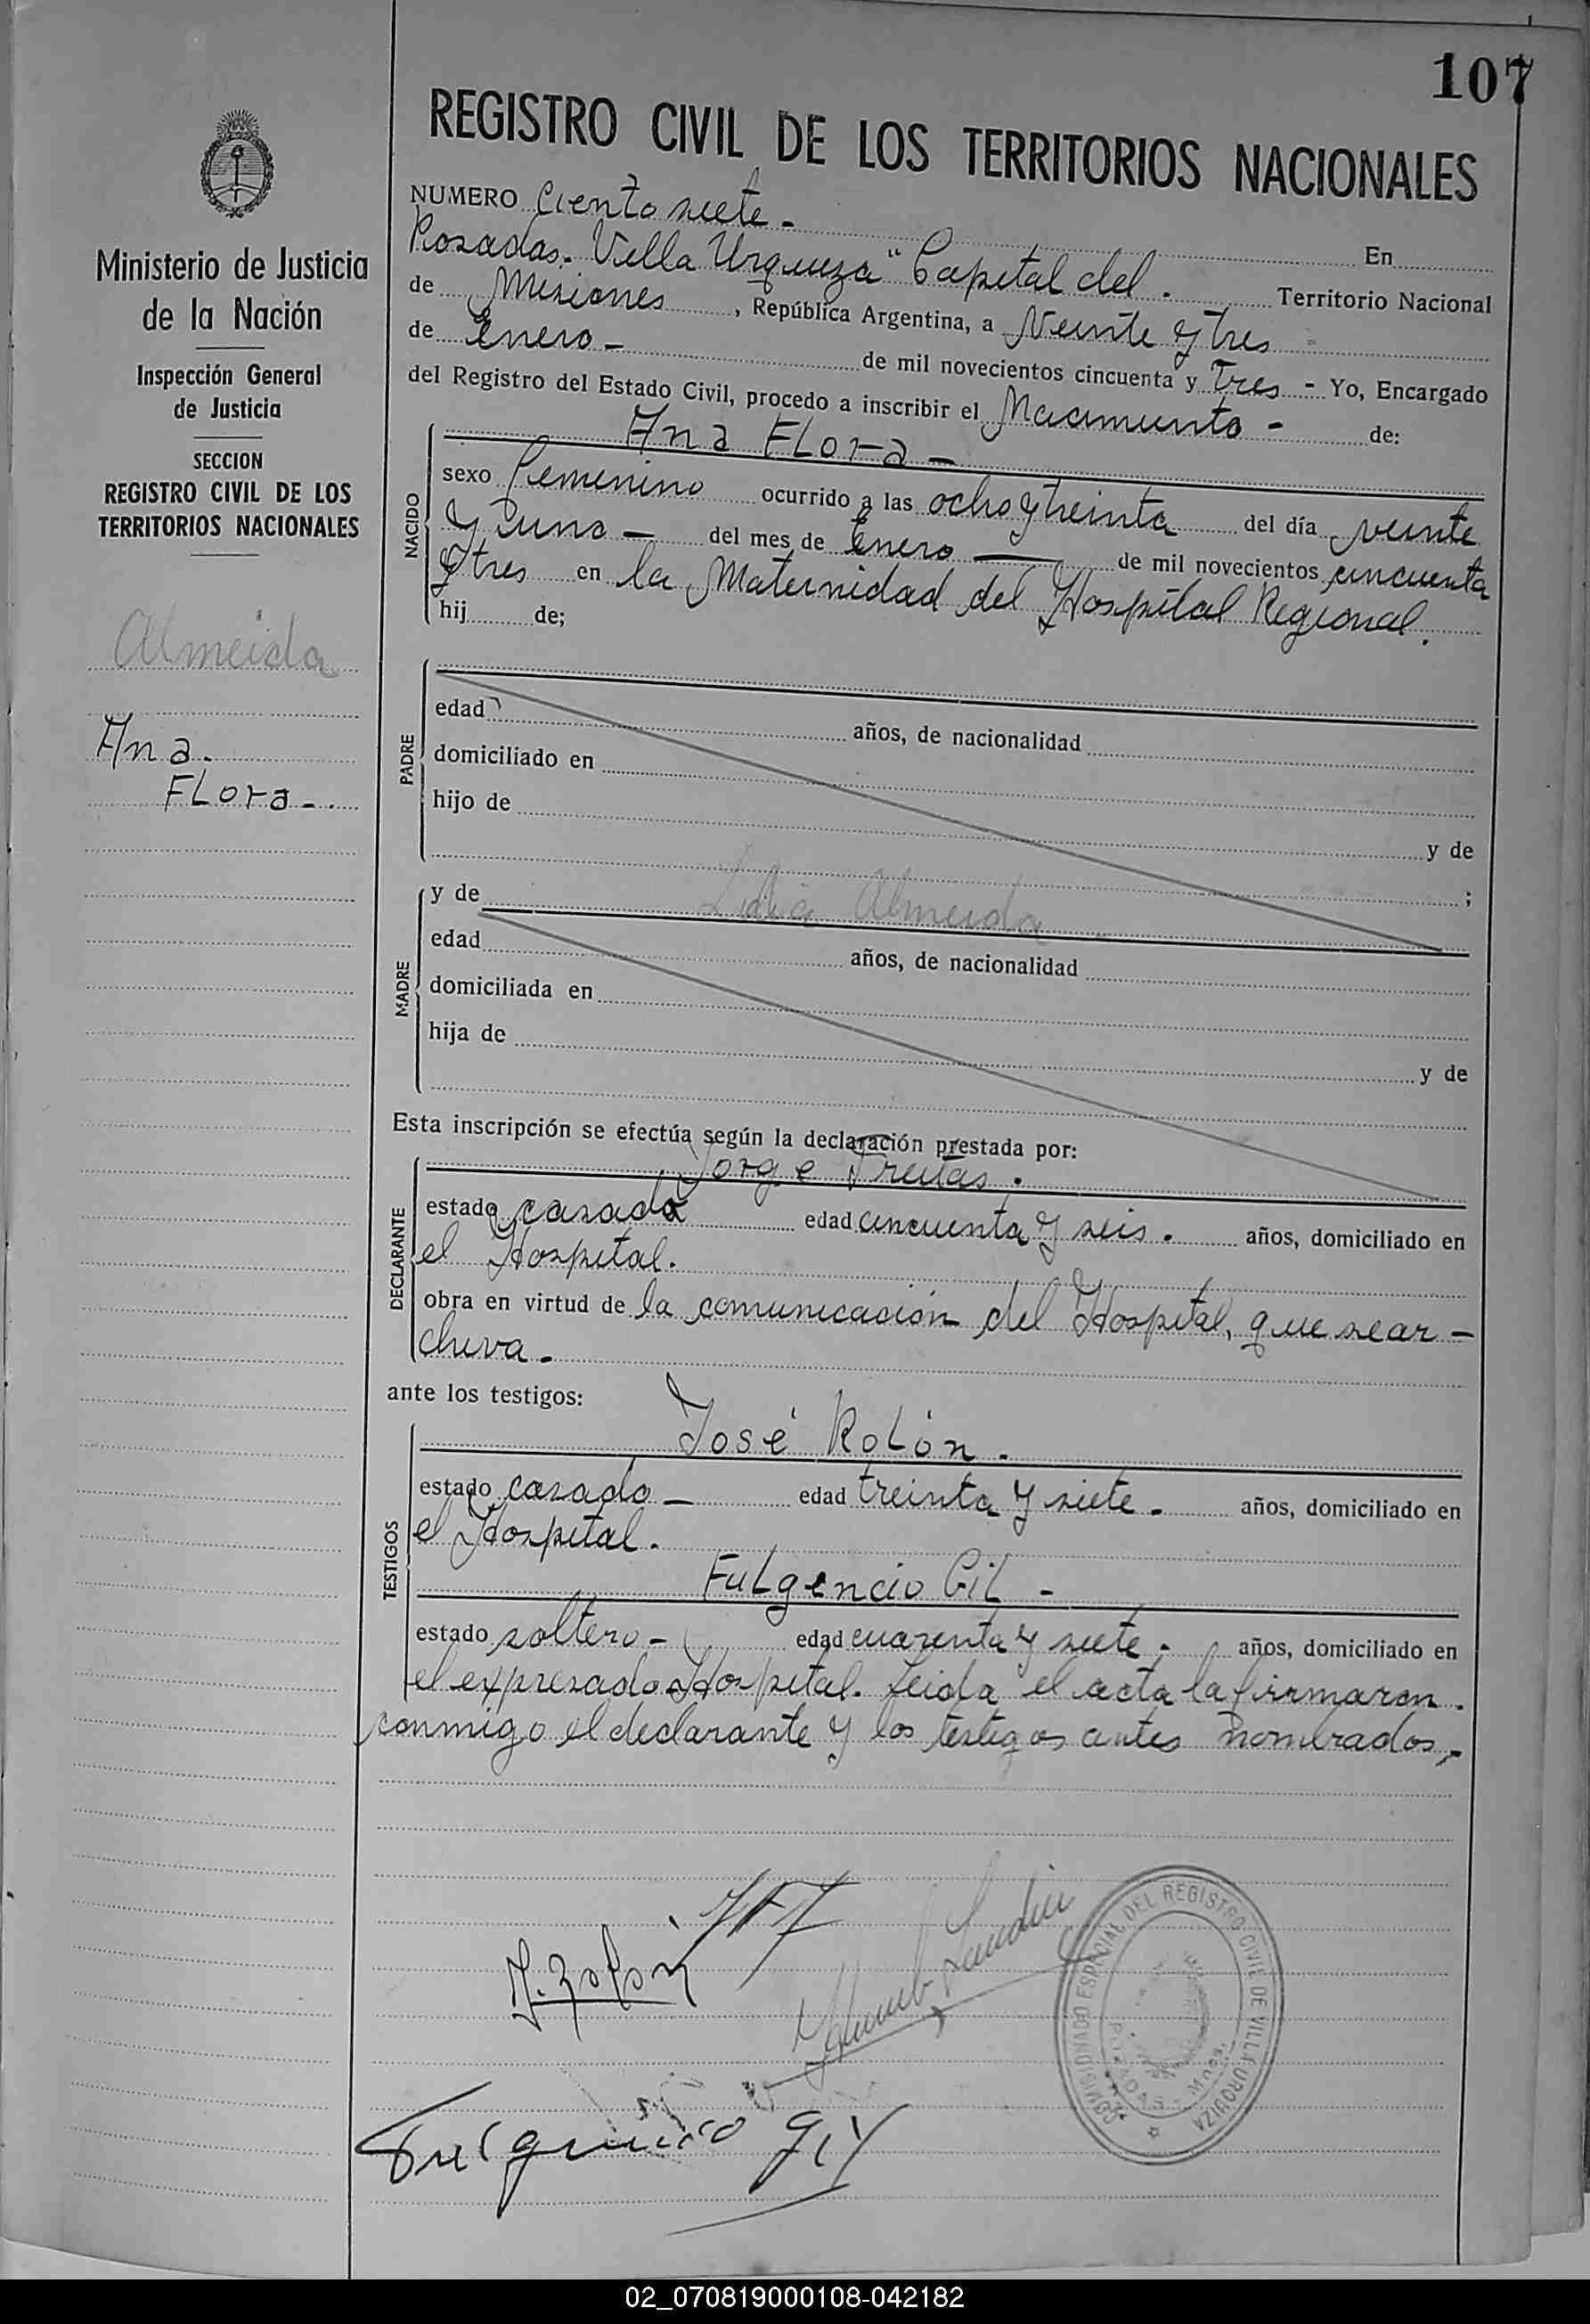 107
REGISTRO CIVIL DE LOS TERRITORIOS NACIONALES
Ministerio de Justicia
de la Nación
Inspección General
de Justicia
SECCION
REGISTRO CIVIL DE LOS
TERRITORIOS NACIONALES
Almeida
Ana.
FLora-.
NUMERO Ciento siete- En
Posadas. Villa Urquiza" Capital del. Territorio Nacional
de Misiones, República Argentina, a Veinte y tres
de Enero- de mil novecientos cincuenta y Tres - Yo, Encargado
del Registro del Estado Civil, procedo a inscribir el Nacimiento- de:
Ana FLora-
NACIDO
sexo Femenino ocurrido a las ocho y treinta del día veinte
y uno - del mes de Enero - de mil novecientos cincuenta
y tres en la Maternidad del Hospital Regional.
hij de;
PADRE
edad años, de nacionalidad
domiciliado en
hijo de
y de
;
MADRE
y de Lidia Almeida
edad años, de nacionalidad
domiciliada en
hija de
y de
Esta inscripción se efectúa según la declaración prestada por:
DECLARANTE
Jorge Freitas.
estado casado edad cincuenta y seis. años, domiciliado en
el Hospital.
obra en virtud de la comunicación del Hospital, que se ar-
chiva.-
ante los testigos:
TESTIGOS
José RoLón.
estado casado - edad treinta y siete. años, domiciliado en
el Hospital.
FuLgencio Gil -
estado soltero- edad cuarenta y siete. años, domiciliado en
el expresado Hospital. Leida el acta la firmaron
conmigo el declarante y los testigos antes nombrados,-
J. Rolón
Fulgencio Gil
COMISIONADO ESPECIAL DEL REGISTRO CIVIL DE VILLA URQUIZA
POSADAS - Mnes.
02_070819000108-042182